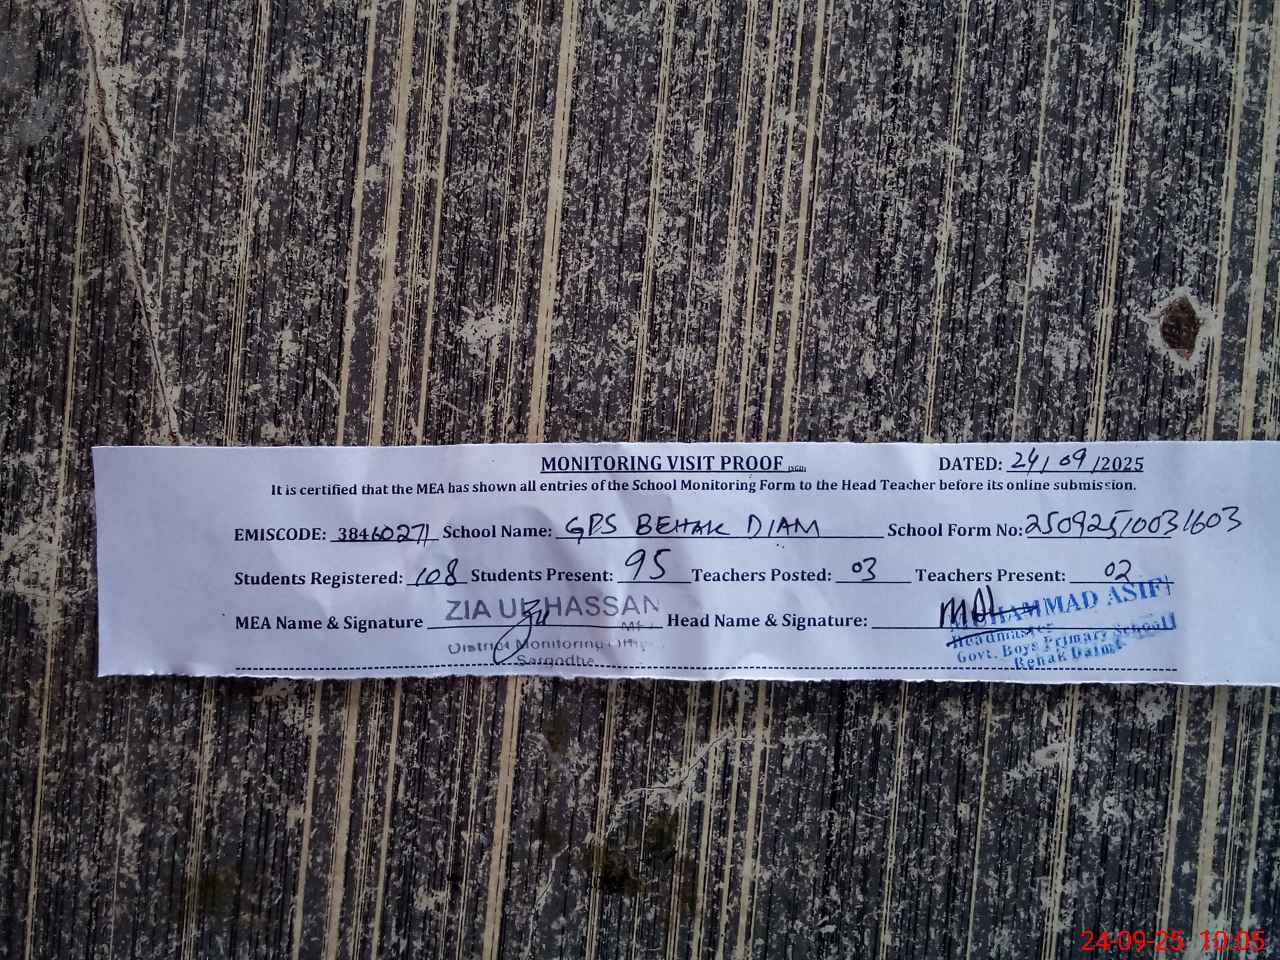 MONITORING VISIT PROOF DATED: 24/09/2025
It is certified that the MEA has shown all entries of the School Monitoring Form to the Head Teacher before its online submission.
EMISCODE: 38460271 School Name: GPS BEHAK DIAM School Form No: 25092510031603
Students Registered: 108 Students Present: 95 Teachers Posted: 03 Teachers Present: 02
MEA Name & Signature ZIA UL HASSAN Head Name & Signature: MOHAMMAD ASIF
District Monitoring Headmaster
Sargodha Govt. Boys Primary School
Behak Daim
24-09-25 10:05